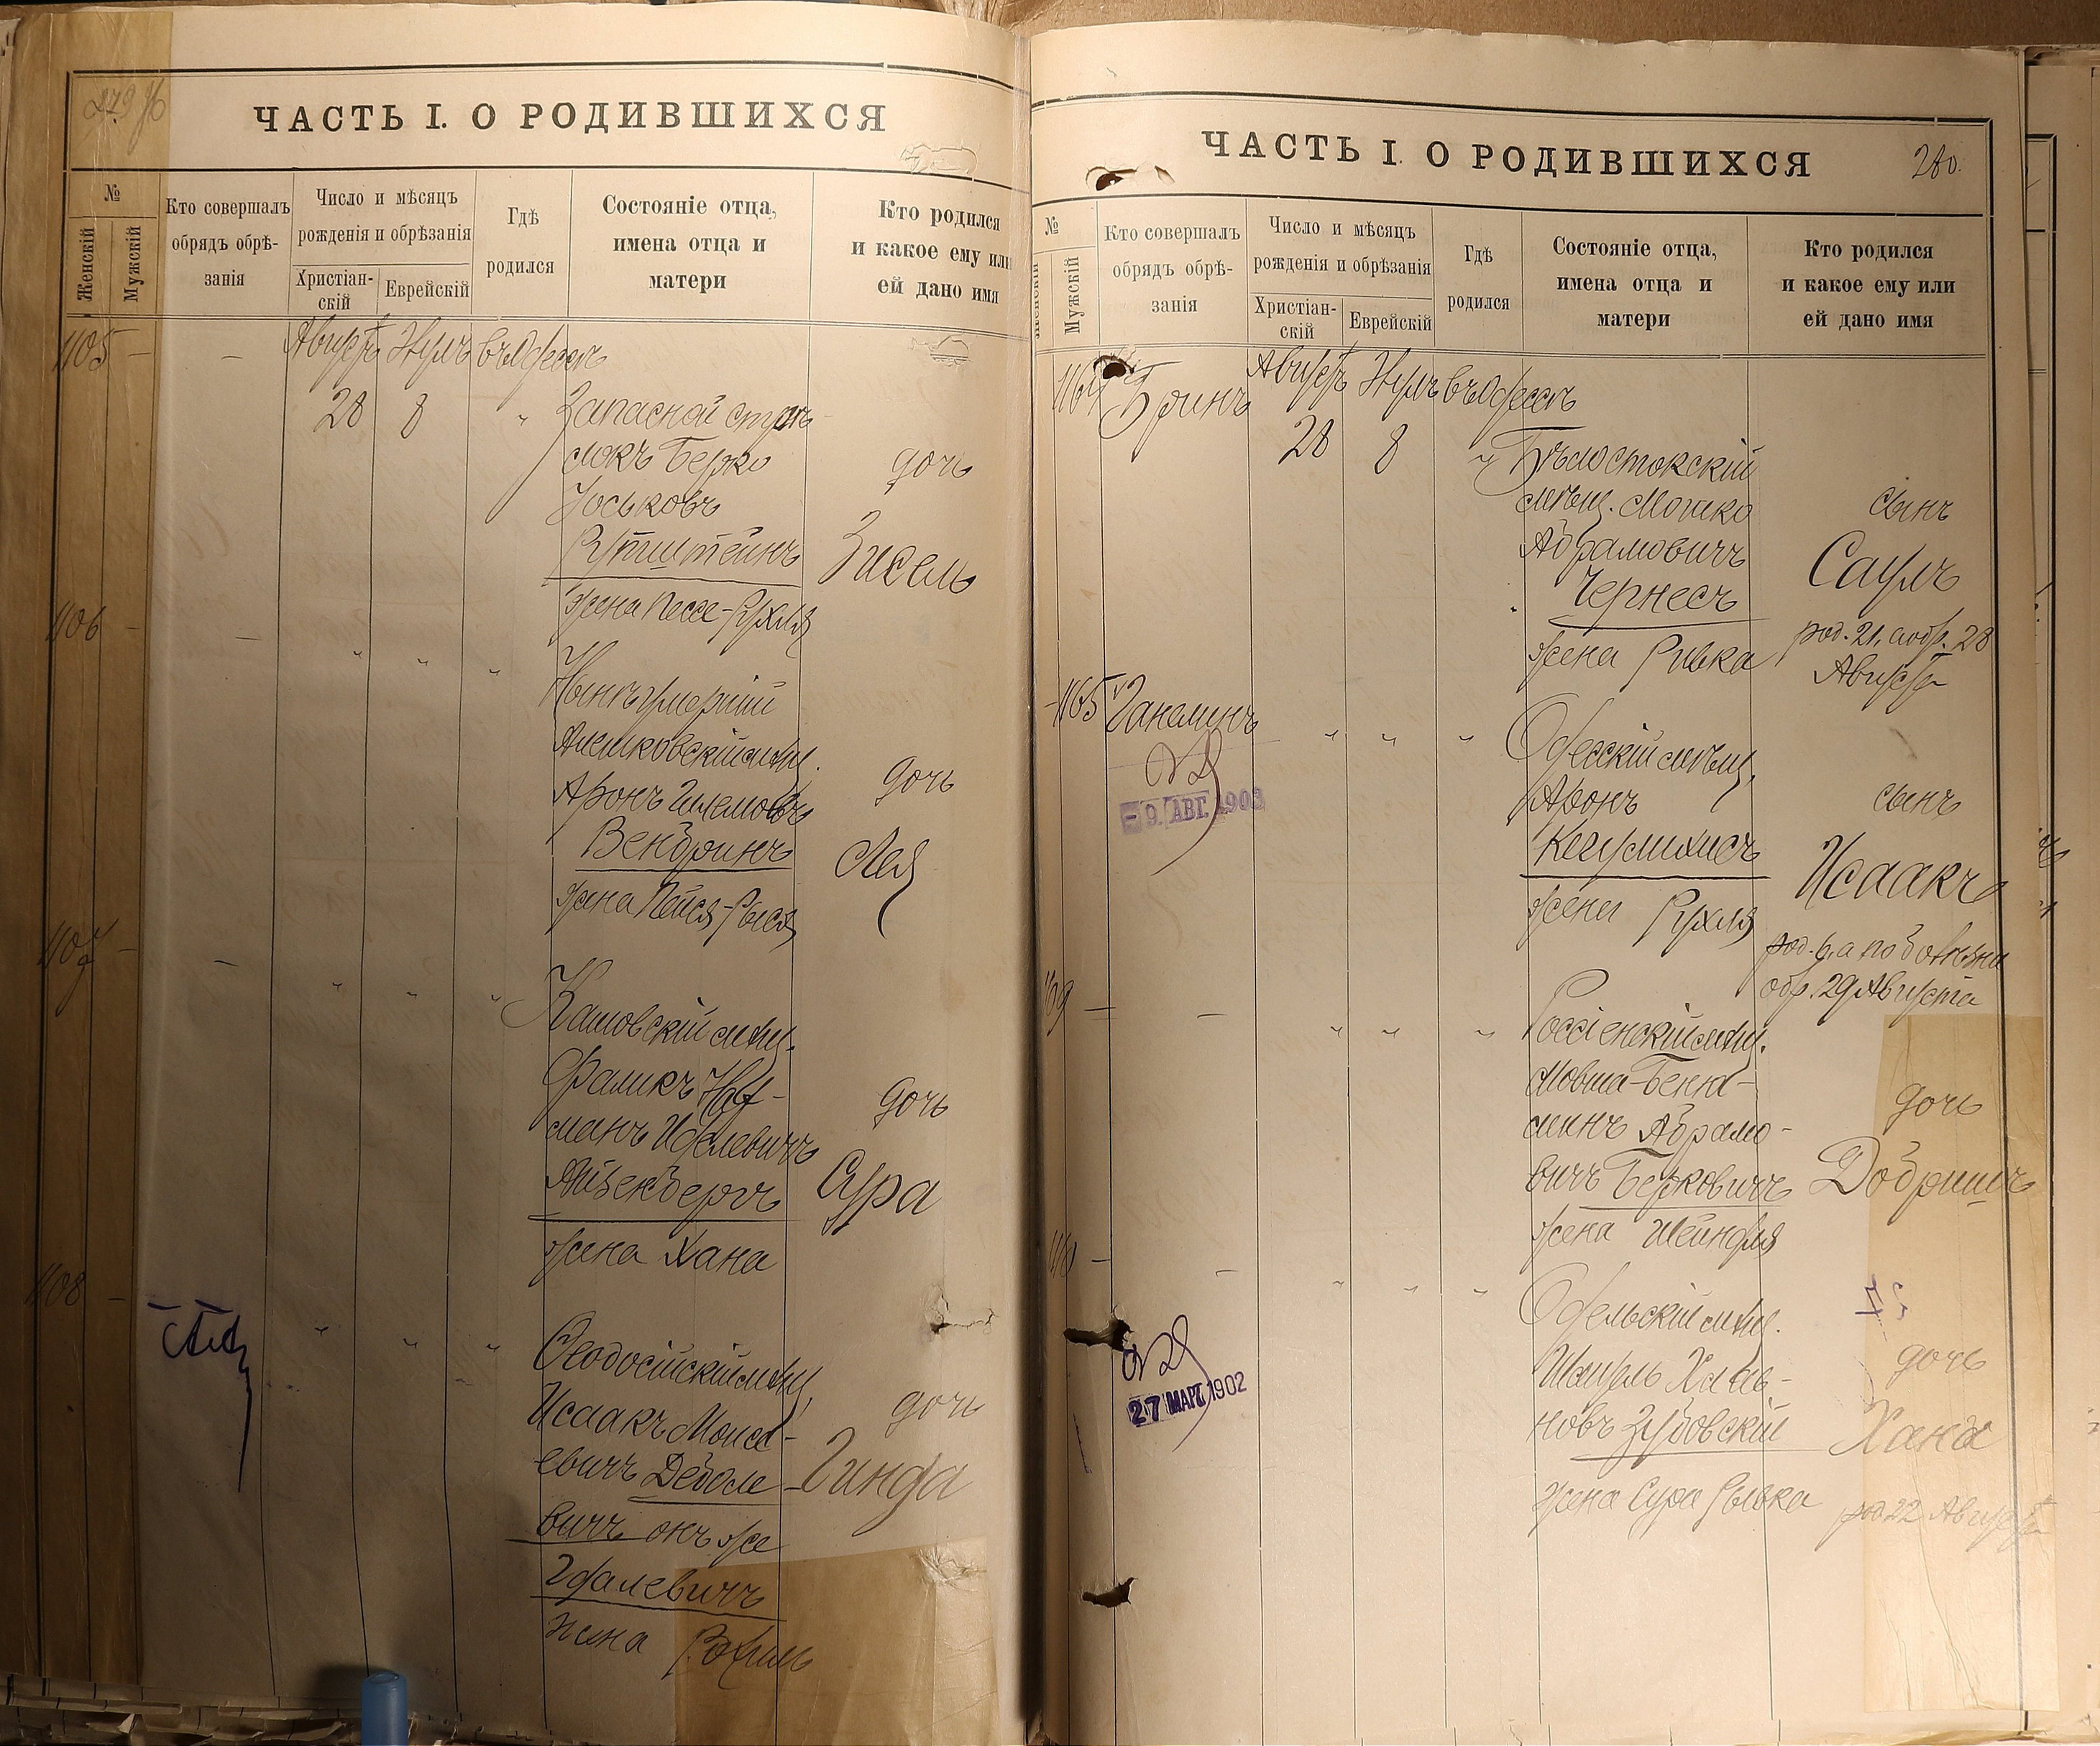 ЧАСТЬ I. О РОДИВШИХСЯ
№
Женскій
Мужскій
Кто совершалъ
обрядъ обрѣ-
занія
Число и мѣсяцъ
рожденія и обрѣзанія
Христіан-
скій
Еврейскій
Гдѣ
родился
Состояніе отца,
имена отца и
матери
Кто родился
и какое ему или
ей дано имя
1105 – – Августъ Элулъ въ Одессѣ
28 8 "
Запасной стрѣ-
локъ Берко
Іоськовъ
Рутштейнъ
жена Пессе-Рухля
дочь
Зисель
1106 – – " " "
Нынѣ умершій
Алешковскій мѣщ.
Аронъ Шлемовъ
Вендринъ
жена Пейся-Рыся
дочь
Лея
1107 – – " " "
Фраликъ
Иделевичъ
Айзенбергъ
жена Хана
дочь
Сура
1108 – " " "
Ѳеодосійскій мѣщ.
Исаакъ Моисе-
евичъ Деболе-
вичъ онъ же
Гдалевичъ
жена Рохиль
дочь
Гинда
ЧАСТЬ I. О РОДИВШИХСЯ
280.
№
Женскій
Мужскій
Кто совершалъ
обрядъ обрѣ-
занія
Число и мѣсяцъ
рожденія и обрѣзанія
Христіан-
скій
Еврейскій
Гдѣ
родился
Состояніе отца,
имена отца и
матери
Кто родился
и какое ему или
ей дано имя
1164 Гринъ Августъ Элулъ въ Одессѣ
28 8 "
Бѣлостокскій
мѣщ. Мошко
Абрамовичъ
Чернесъ
жена Ривка
сынъ
Саулъ
род. 21, а обр. 28
Августа
1165 Ганелинъ " " "
9. АВГ. 1903
Одесскій мѣщ.
Аронъ
жена Рухля
сынъ
Исаакъ
род. 6, а по болѣзни
обр. 29 Августа
1109 – – " " "
Россіенскій мѣщ.
Мовша-Беніа-
минъ Абрамо-
вичъ Берковичъ
жена Шейндля
дочь
Добришъ
1110 – – " " "
27 МАРТ 1902
Одельскій мѣщ.
новъ Зубовскій
жена Сура Рывка
дочь
Хана
род 22 Августа